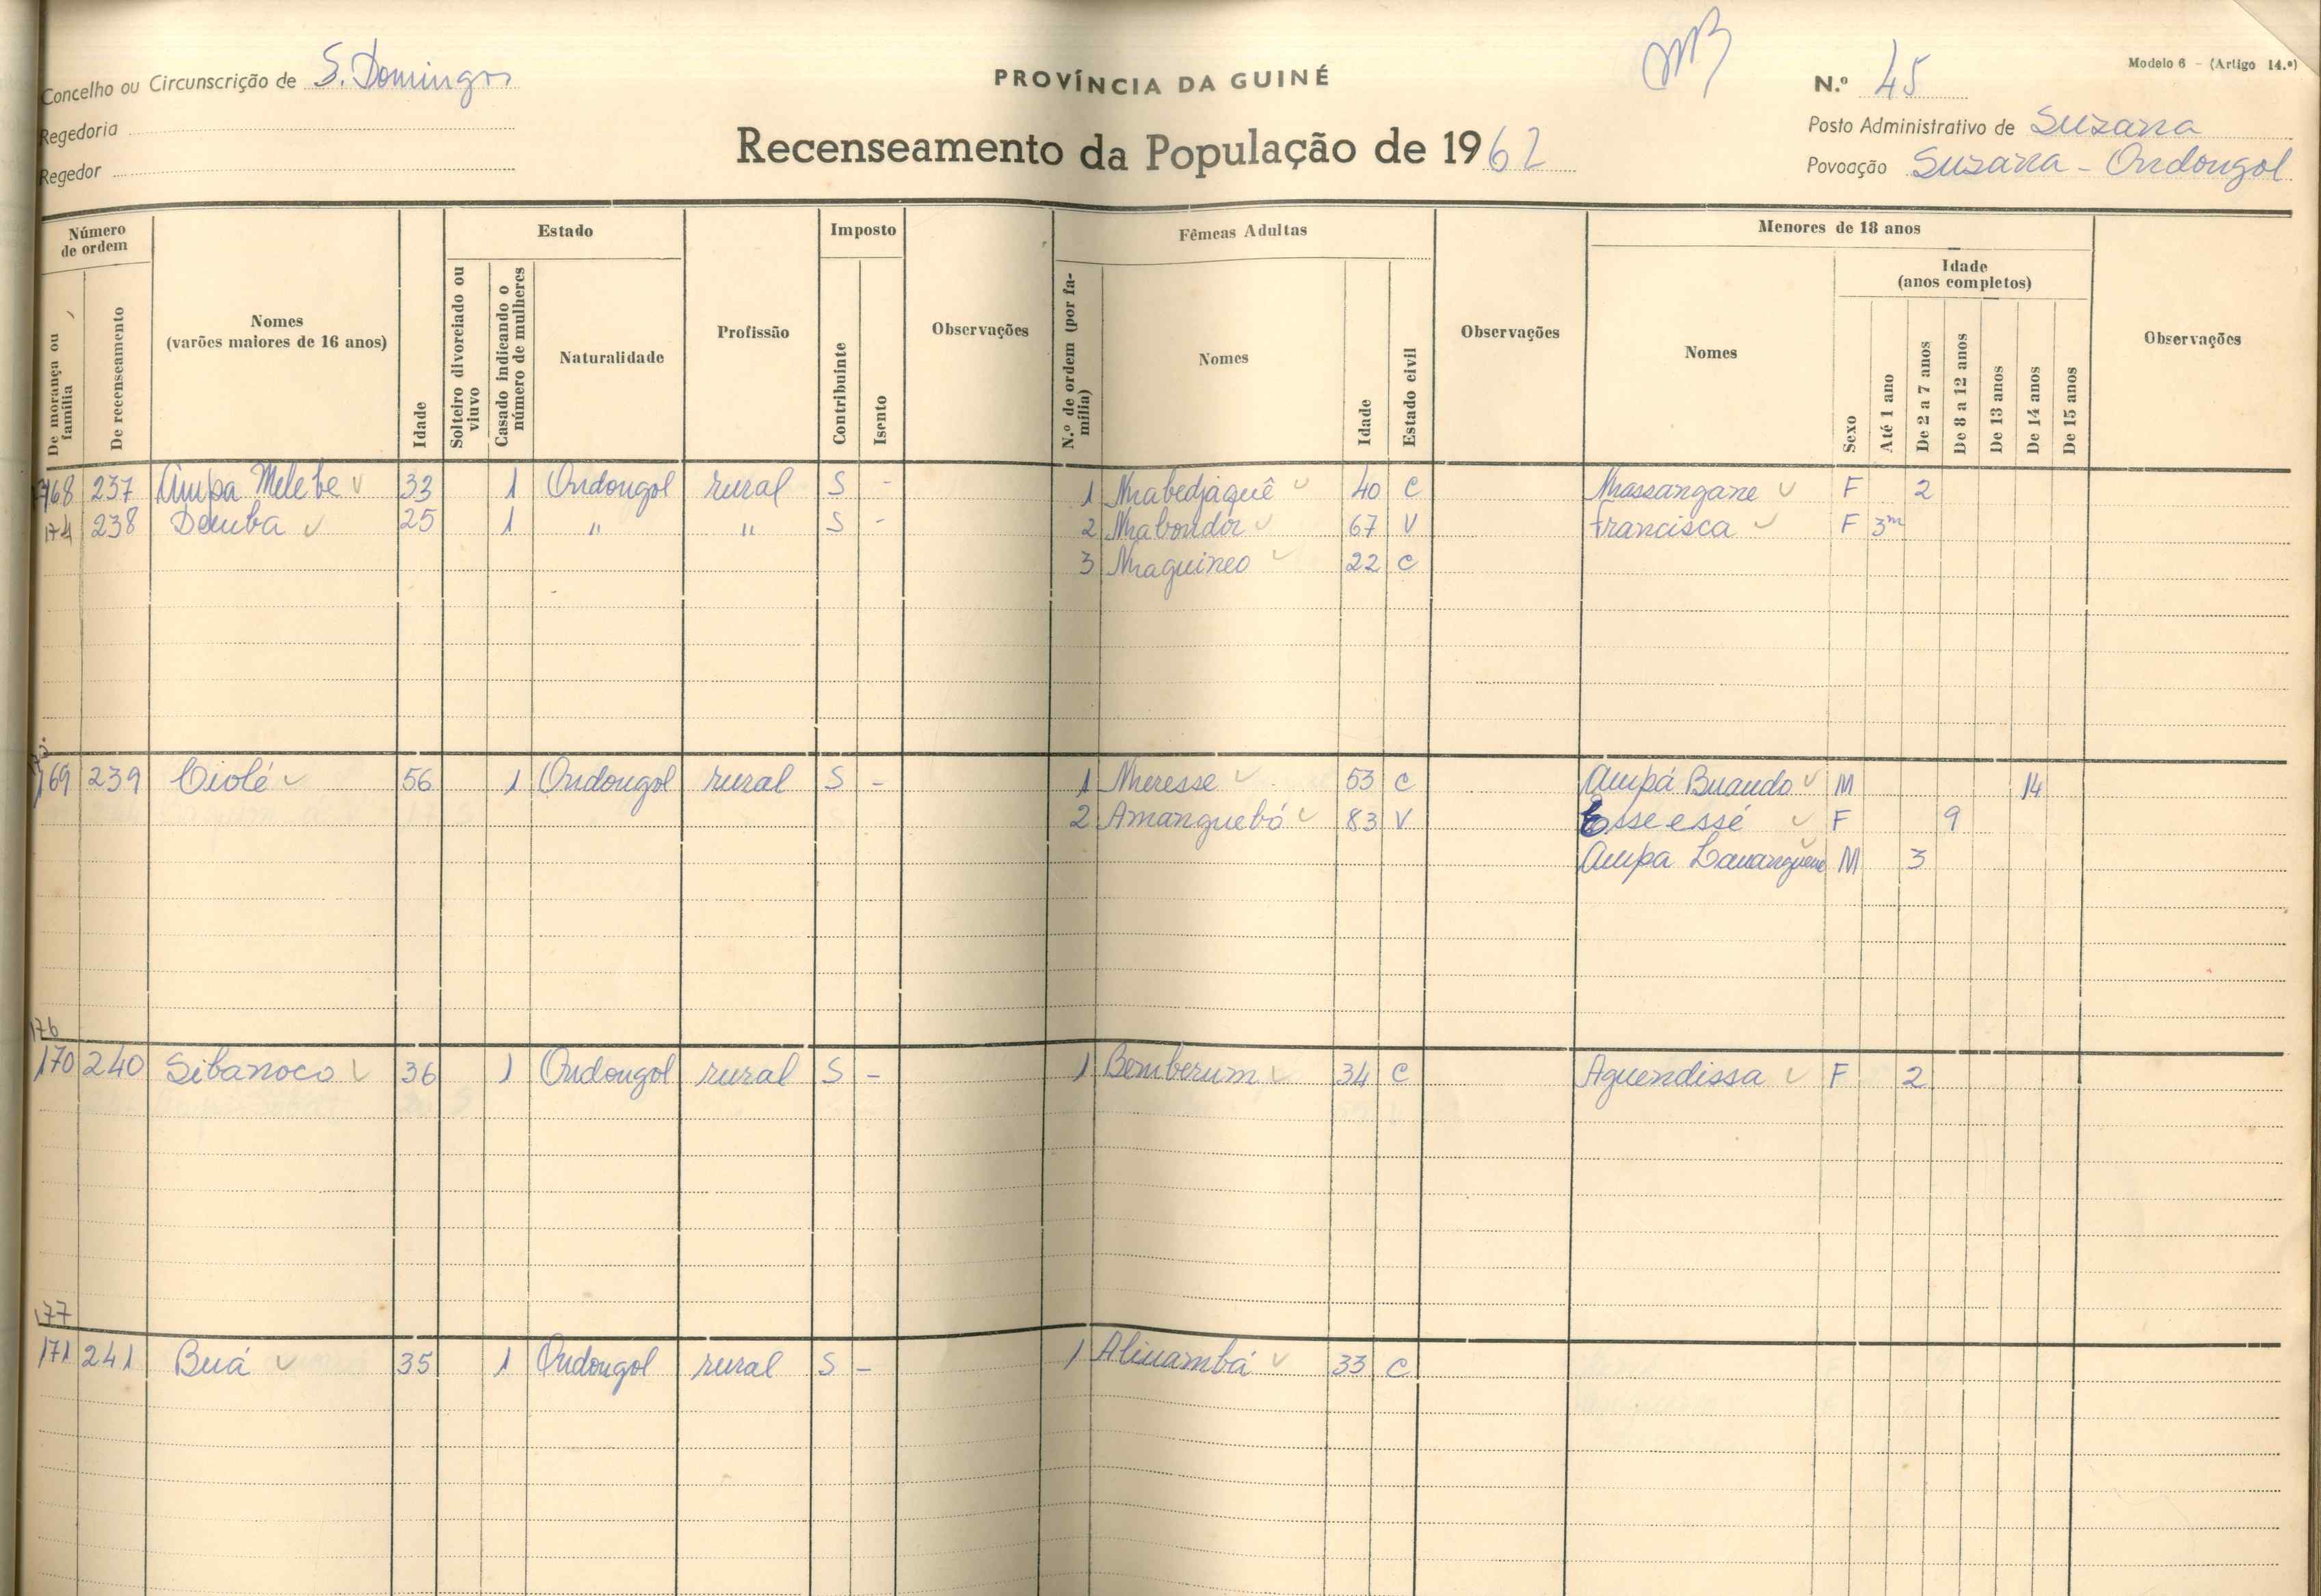 Concelho ou Circunscrição de S. Domingos
Regedoria
Regedor
PROVÍNCIA DA GUINÉ
Recenseamento da População de 1962
Modelo 6 - (Artigo 14.º)
N.º 45
Posto Administrativo de Suzana
Povoação Suzana - Ondongol
Número de ordem
De morança ou família
De recenseamento
Nomes
(varões maiores de 16 anos)
Idade
Estado
Solteiro divorciado ou viuvo
Casado indicando o número de mulheres
Naturalidade
Profissão
Imposto
Contribuinte
Isento
Observações
Fêmeas Adultas
N.º de ordem (por família)
Nomes
Idade
Estado civil
Observações
Menores de 18 anos
Nomes
Sexo
Idade
(anos completos)
Até 1 ano
De 2 a 7 anos
De 8 a 12 anos
De 13 anos
De 14 anos
De 15 anos
Observações
168 237 Ampa Melebe 33 1 Ondongol rural S - 1 Nhabedjaquê 40 C Nhassangane F 2
174 238 Demba 25 1 " " S - 2 Nhabondor 67 V Francisca F 3m
3 Nhaguineo 22 C
169 239 Ciolé 56 1 Ondongol rural S - 1 Nheresse 53 C Ampá Buando M 14
2 Amanguebó 83 V Esseessé F 9
Ampa M 3
176
170 240 Sibanoco 36 1 Ondongol rural S - 1 Bemberum 34 C Aguendissa F 2
177
171 241 Buá 35 1 Ondongol rural S - 1 Alinambá 33 C